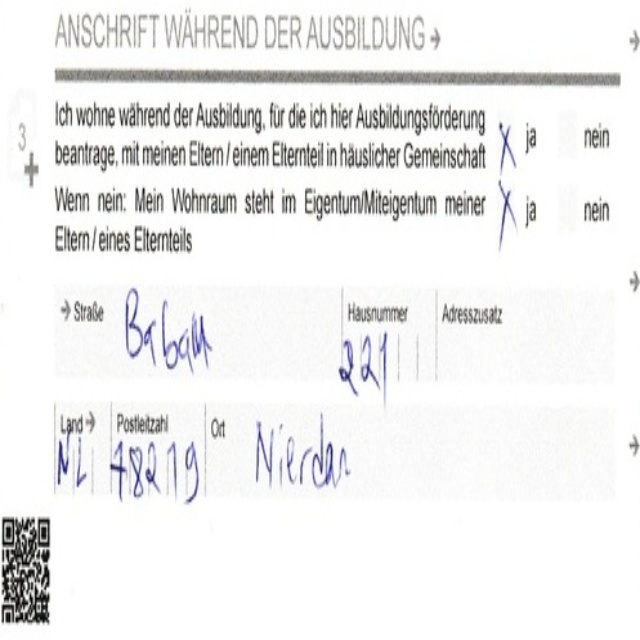 ANSCHRIFT WÄHREND DER AUSBILDUNG →
3
Ich wohne während der Ausbildung, für die ich hier Ausbildungsförderung
beantrage, mit meinen Eltern / einem Elternteil in häuslicher Gemeinschaft
X ja nein
Wenn nein: Mein Wohnraum steht im Eigentum/Miteigentum meiner
Eltern / eines Elternteils
X ja nein
→ Straße Hausnummer Adresszusatz
221
Land → Postleitzahl Ort
NL 78219 Nierdan